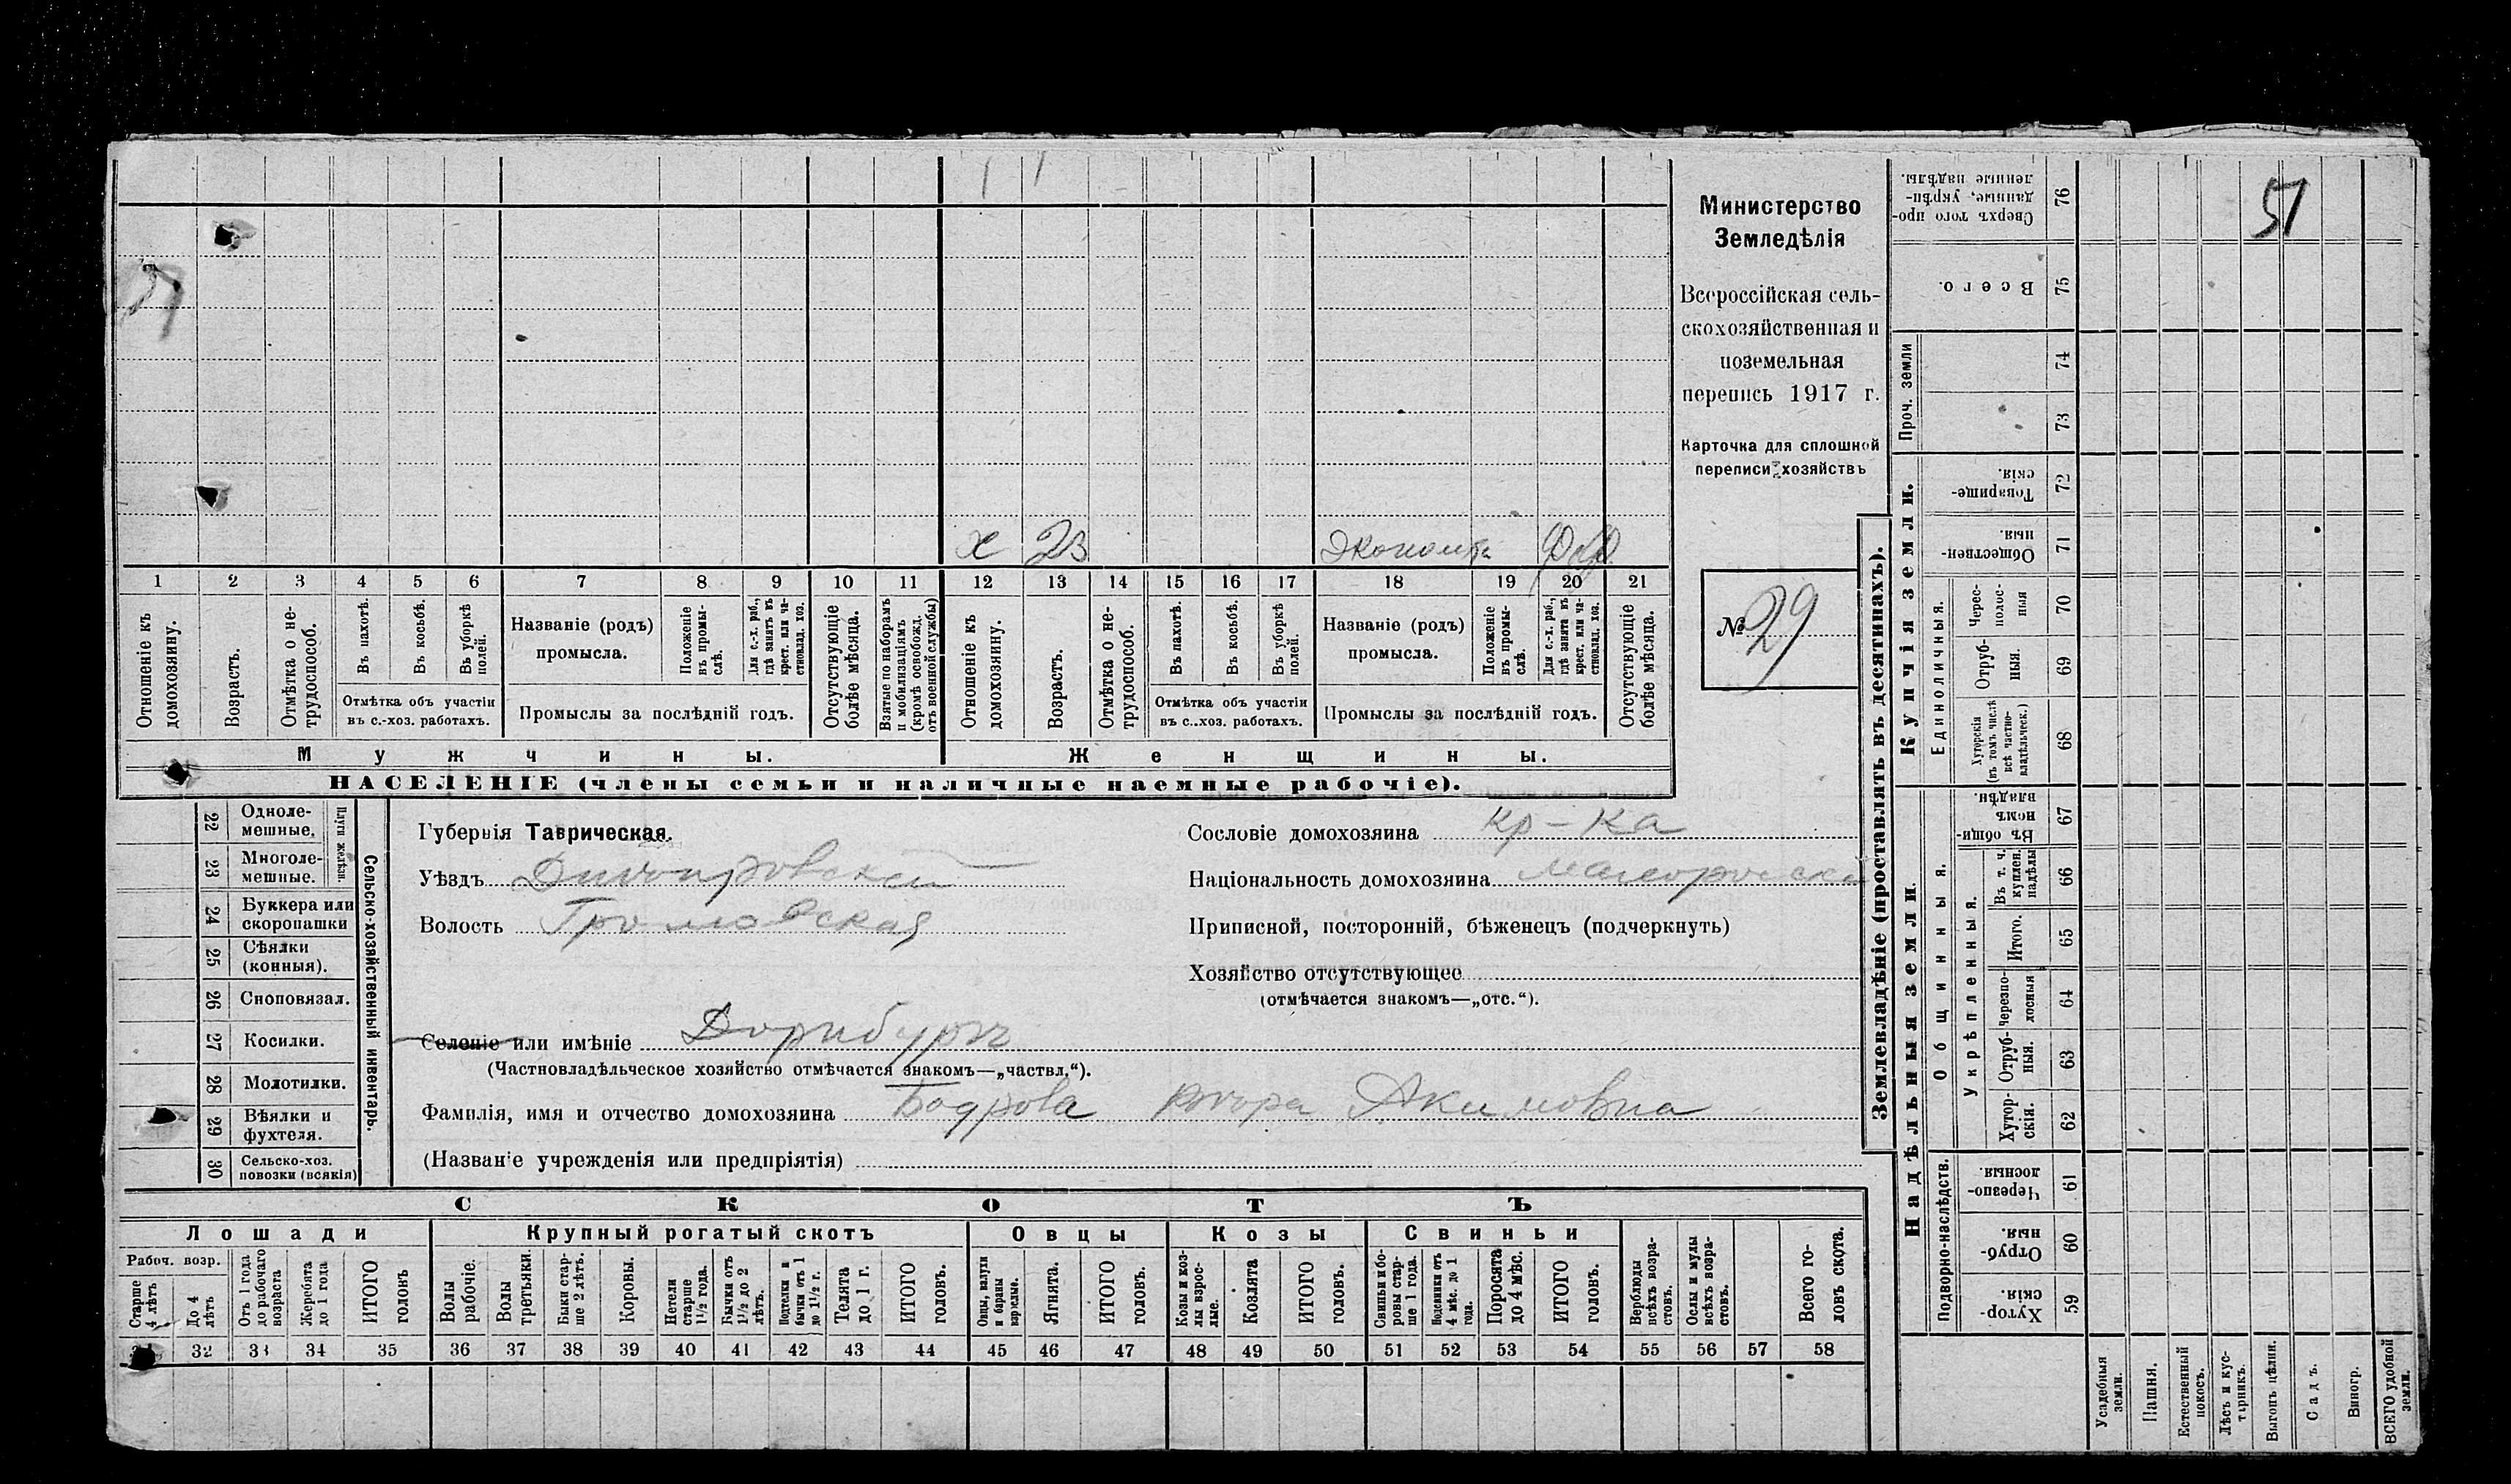 1 1
51
Министерство
Земледѣлія
Всероссійская сель-
скохозяйственная и
поземельная
перепись 1917 г.
Карточка для сплошной
переписи хозяйствъ
№ 29
х 23
1 2 3 4 5 6 7 8 9 10 11 12 13 14 15 16 17 18 19 20 21
Отношеніе къ домохозяину.
Возрастъ.
Отмѣтка о не-трудоспособ.
Въ пахотѣ.
Въ косьбѣ.
Въ уборкѣ полей.
Отмѣтка объ участіи
въ с.-хоз. работахъ.
Названіе (родъ)
промысла.
Положеніе въ промы-слѣ.
Для с.-х. раб., гдѣ занятъ въ крест. или ча-стновлад. хоз.
Промыслы за послѣдній годъ.
Отсутствующіе болѣе мѣсяца.
Взятые по наборамъ и мобилизаціямъ (кромѣ освобожд. отъ военной службы)
Отношеніе къ домохозяину.
Возрастъ.
Отмѣтка о не-трудоспособ.
Въ пахотѣ.
Въ косьбѣ.
Въ уборкѣ полей.
Отмѣтка объ участіи
въ с.-хоз. работахъ.
Названіе (родъ)
промысла.
Положеніе въ промы-слѣ.
Для с.-х. раб., гдѣ занята въ крест. или ча-стновлад. хоз.
Промыслы за послѣдній годъ.
Отсутствующіе болѣе мѣсяца.
Мужчины.
Женщины.
НАСЕЛЕНІЕ (члены семьи и наличные наемные рабочіе).
22 Одноле-мешные.
23 Многоле-мешные.
Плуги желѣзн.
24 Буккера или скоропашки
25 Сѣялки (конныя).
26 Сноповязал.
27 Косилки.
28 Молотилки.
29 Вѣялки и фухтеля.
30 Сельско-хоз. повозки (всякія)
Сельско-хозяйственный инвентарь.
Губернія Таврическая.
Уѣздъ Днѣпровскій
Волость Громовская
Селеніе или имѣніе
(Частновладѣльческое хозяйство отмѣчается знакомъ—„частвл.“).
Фамилія, имя и отчество домохозяина Бодрова Акимовна
(Названіе учрежденія или предпріятія)
Сословіе домохозяина кр-ка
Національность домохозяина
Приписной, посторонній, бѣженецъ (подчеркнуть)
Хозяйство отсутствующее
(отмѣчается знакомъ—„отс.“).
СКОТЪ
Лошади
Крупный рогатый скотъ
Овцы
Козы
Свиньи
Рабоч. возр.
Старше 4 лѣтъ
До 4 лѣтъ
Отъ 1 года до рабочаго возраста
Жеребята до 1 года
ИТОГО головъ
Волы рабочіе.
Волы третьяки.
Быки стар-ше 2 лѣтъ.
Коровы.
Нетели старше 1½ года.
Бычки отъ 1½ до 2 лѣтъ.
Подтелки и бычки отъ 1 до 1½ г.
Телята до 1 г.
ИТОГО головъ.
Овцы, валухи и бараны взрослые.
Ягнята.
ИТОГО головъ.
Козы и коз-лы взрос-лые.
Козлята
ИТОГО головъ.
Свиньи и бо-ровы стар-ше 1 года.
Подсвинки отъ 4 мѣс. до 1 года.
Поросята до 4 мѣс.
ИТОГО головъ.
Верблюды всѣхъ возра-стовъ.
Ослы и мулы всѣхъ возра-стовъ.
Всего го-ловъ скота.
32 33 34 35 36 37 38 39 40 41 42 43 44 45 46 47 48 49 50 51 52 53 54 55 56 57 58
Землевладѣніе (проставлять въ десятинахъ).
Купчія земли.
Надѣльныя земли.
76 Сверхъ того про-данные, укрѣп-ленные надѣлы.
75 Всего.
Проч. земли
74
73
72 Товарище-скія.
71 Обществен-ныя.
Единоличныя.
70 Черес-полос-ныя
69 Отруб-ныя.
68 Хуторскія (въ томъ числѣ всѣ частно-владѣльческ.)
Общинныя.
67 Въ общи-номъ владѣн.
Укрѣпленныя.
66 Въ т. ч. куплен. надѣлы
65 Итого.
64 Черезпо-лосныя
63 Отруб-ныя.
62 Хутор-скія.
Подворно-наслѣдств.
61 Черезпо-лосныя.
60 Отруб-ныя.
59 Хутор-скія.
Усадебныя земли.
Пашня.
Естественный покосъ.
Лѣсъ и кус-тарникъ.
Выгонъ цѣлин.
Садъ.
Виногр.
ВСЕГО удобной земли.